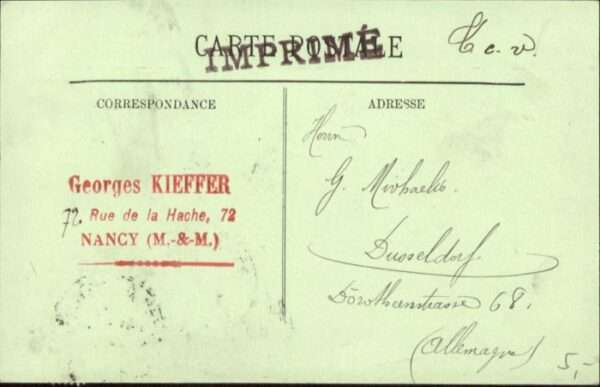 CARTE POSTALE
IMPRIMÉ
T.c.v.
CORRESPONDANCE
ADRESSE
Georges KIEFFER
72. Rue de la Hache, 72
NANCY (M.-&-M.)
Herrn
G. Michaelis.
Dusseldorf
Dorotheenstrasse 68.
(Allemagne)
5,-